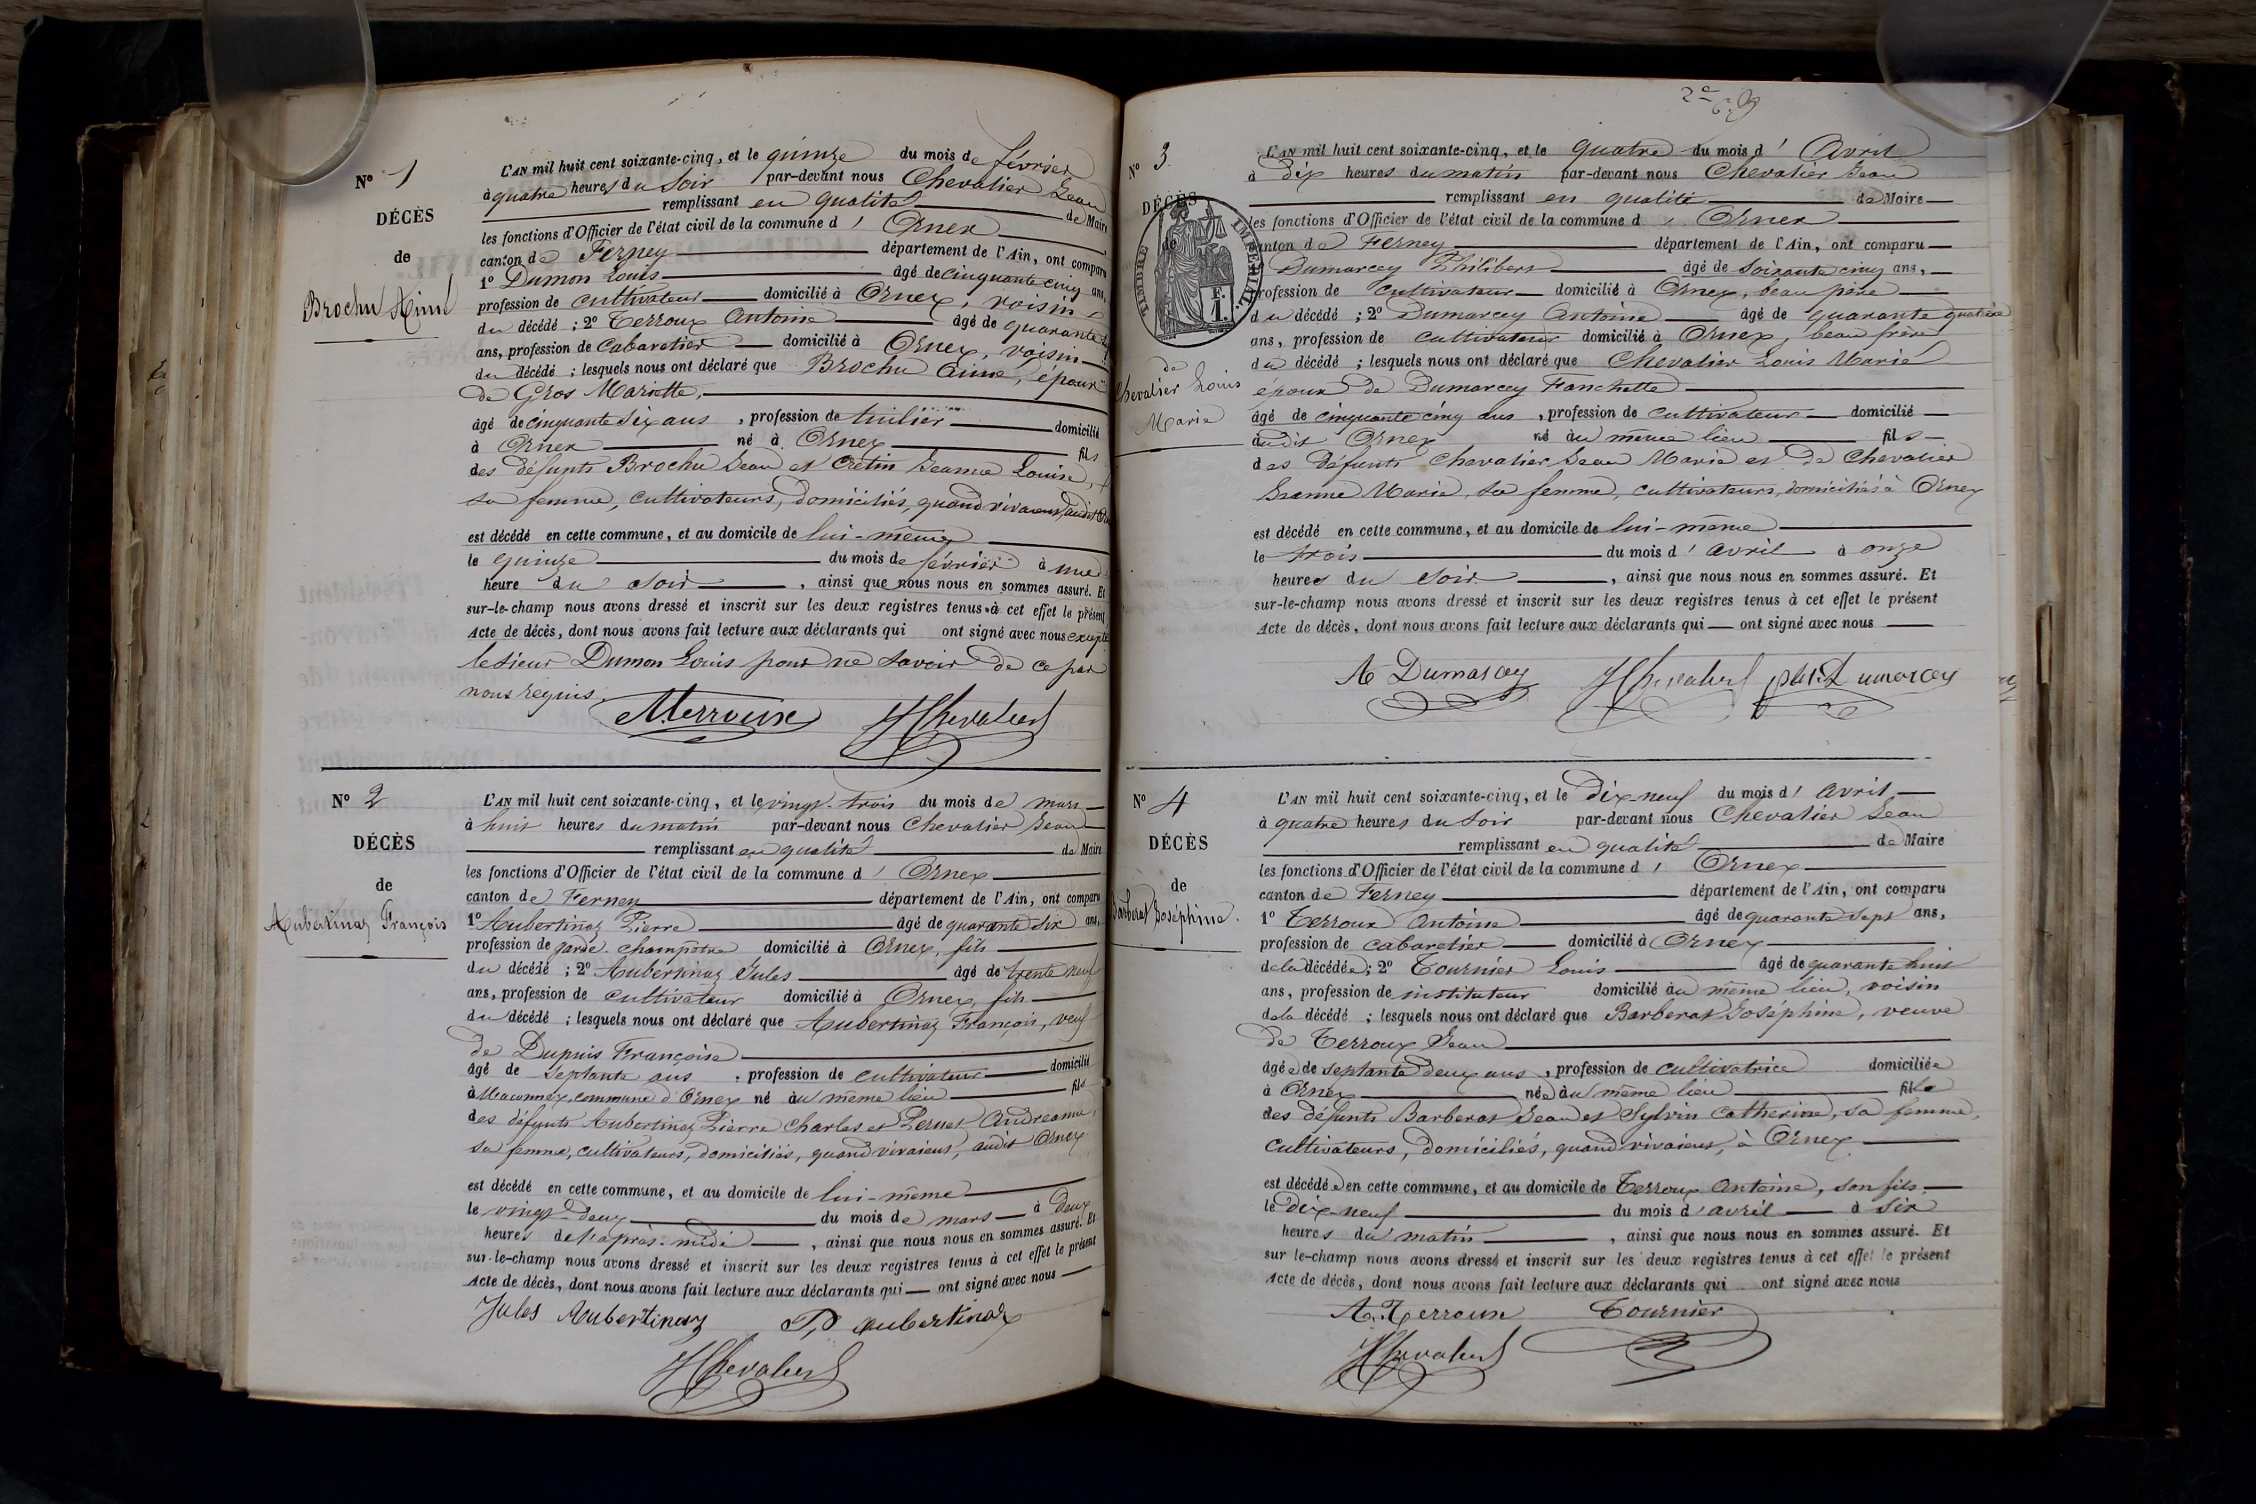 N° 1
DÉCÈS
de
Brochu Aimé
L'AN mil huit cent soixante-cinq, et le quinze du mois de février
à quatre heures du soir par-devant nous Chevalier Jean
remplissant en qualité de Maire
les fonctions d'Officier de l'état civil de la commune d' Ornex
canton de Ferney département de l'Ain, ont comparu
1° Dumon Louis âgé de cinquante cinq ans,
profession de cultivateur domicilié à Ornex, voisin
du décédé ; 2° Terroux Antoine âgé de quarante
ans, profession de cabaretier domicilié à Ornex, voisin
du décédé ; lesquels nous ont déclaré que Brochu Aimé, époux
de Gros Mariette,
âgé de cinquante six ans, profession de tuilier domicilié
à Ornex né à Ornex fils
des défunts Brochu Jean et Cretin Jeanne Louise,
sa femme, cultivateurs, domiciliés, quand vivaient, audit
est décédé en cette commune, et au domicile de lui-même
le quinze du mois de février à une
heure du soir, ainsi que nous nous en sommes assuré. Et
sur-le-champ nous avons dressé et inscrit sur les deux registres tenus à cet effet le présent
Acte de décès, dont nous avons fait lecture aux déclarants qui ont signé avec nous excepté
le sieur Dumon Louis pour ne savoir de ce par
nous requis.
A Terroux J Chevalier
N° 2
DÉCÈS
de
Aubertinaz François
L'AN mil huit cent soixante-cinq, et le vingt-trois du mois de mars
à huit heures du matin par-devant nous Chevalier Jean
remplissant en qualité de Maire
les fonctions d'Officier de l'état civil de la commune d' Ornex
canton de Ferney département de l'Ain, ont comparu
1° Aubertinaz Pierre âgé de quarante six ans,
profession de garde champêtre domicilié à Ornex, fils
du décédé ; 2° Aubertinaz Jules âgé de trente neuf
ans, profession de cultivateur domicilié à Ornex, fils
du décédé ; lesquels nous ont déclaré que Aubertinaz François, veuf
de Dupuis Françoise
âgé de septante ans, profession de cultivateur domicilié
à Maconnex, commune d'Ornex né au même lieu fils
des défunts Aubertinaz Pierre Charles et Pernet Andreanne,
sa femme, cultivateurs, domiciliés, quand vivaient, audit Ornex
est décédé en cette commune, et au domicile de lui-même
le vingt-deux du mois de mars à deux
heures de l'après-midi, ainsi que nous nous en sommes assuré. Et
sur-le-champ nous avons dressé et inscrit sur les deux registres tenus à cet effet le présent
Acte de décès, dont nous avons fait lecture aux déclarants qui ont signé avec nous
Jules Aubertinaz P, aubertinaz
J Chevalier
N° 3
DÉCÈS
de
TIMBRE IMPÉRIAL
F.
1.
de
Chevalier Louis
Marie
L'AN mil huit cent soixante-cinq, et le quatre du mois d' Avril
à dix heures du matin par-devant nous Chevalier Jean
remplissant en qualité de Maire
les fonctions d'Officier de l'état civil de la commune d' Ornex
canton de Ferney département de l'Ain, ont comparu
Dumarcey Philibert âgé de soixante cinq ans,
profession de cultivateur domicilié à Ornex, beau père
du décédé ; 2° Dumarcey Antoine âgé de quarante quatre
ans, profession de cultivateur domicilié à Ornex, beau frère
du décédé ; lesquels nous ont déclaré que Chevalier Louis Marie
époux de Dumarcey Fanchette
âgé de cinquante cinq ans, profession de cultivateur domicilié
audit Ornex né au même lieu fils
des défunts Chevalier Jean Marie et de Chevalier
Jeanne Marie, sa femme, cultivateurs, domiciliés à Ornex
est décédé en cette commune, et au domicile de lui-même
le trois du mois d'avril à onze
heures du soir, ainsi que nous nous en sommes assuré. Et
sur-le-champ nous avons dressé et inscrit sur les deux registres tenus à cet effet le présent
Acte de décès, dont nous avons fait lecture aux déclarants qui ont signé avec nous
A Dumarcey J Chevalier Dumarcey
N° 4
DÉCÈS
de
Barberat Joséphine.
L'AN mil huit cent soixante-cinq, et le dix-neuf du mois d' avril
à quatre heures du soir par-devant nous Chevalier Jean
remplissant en qualité de Maire
les fonctions d'Officier de l'état civil de la commune d' Ornex
canton de Ferney département de l'Ain, ont comparu
1° Terroux Antoine âgé de quarante sept ans,
profession de cabaretier domicilié à Ornex
de la décédée ; 2° Tournier Louis âgé de quarante huit
ans, profession de instituteur domicilié au même lieu, voisin
de la décédé ; lesquels nous ont déclaré que Barberat Joséphine, veuve
de Terroux Jean
âgée de septante deux ans, profession de cultivatrice domiciliée
à Ornex née au même lieu fille
des défunts Barberat Jean et Sylvin Catherine, sa femme,
cultivateurs, domiciliés, quand vivaient, à Ornex
est décédée en cette commune, et au domicile de Terroux Antoine, son fils
le dix-neuf du mois d'avril à six
heures du matin, ainsi que nous nous en sommes assuré. Et
sur le-champ nous avons dressé et inscrit sur les deux registres tenus à cet effet le présent
Acte de décès, dont nous avons fait lecture aux déclarants qui ont signé avec nous
A. Terroux Tournier
J Chevalier